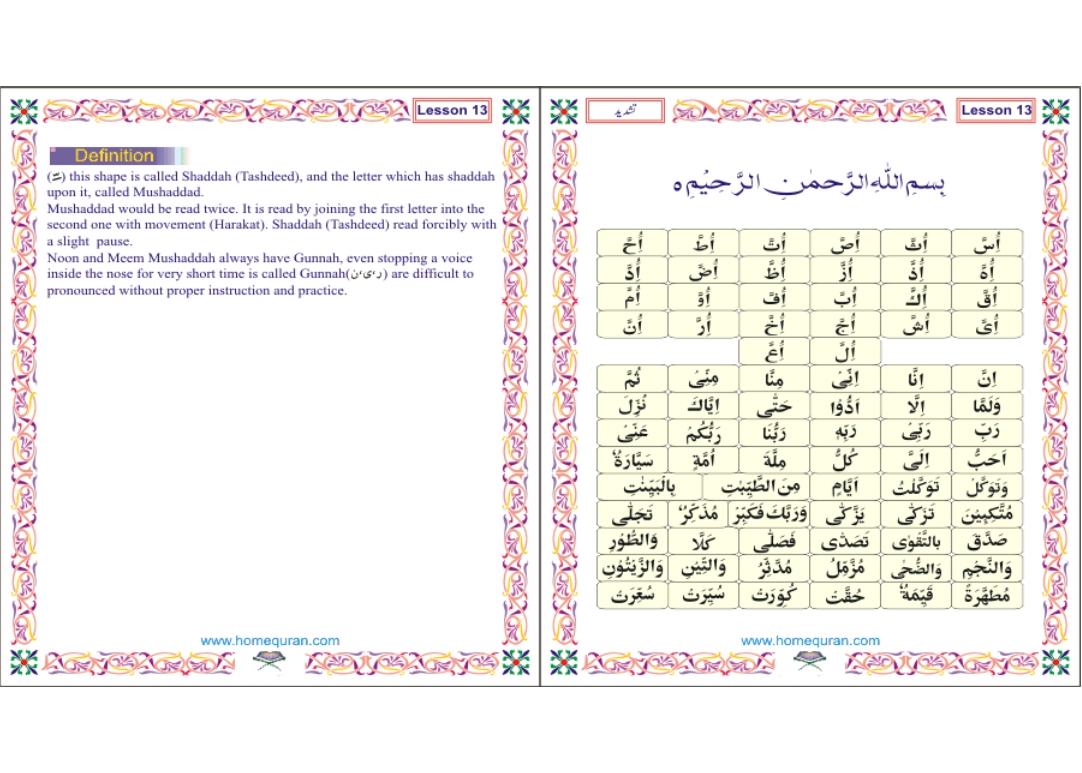 Lesson 13
Definition
(ـّـ) this shape is called Shaddah (Tashdeed), and the letter which has shaddah
upon it, called Mushaddad.
Mushaddad would be read twice. It is read by joining the first letter into the
second one with movement (Harakat). Shaddah (Tashdeed) read forcibly with
a slight pause.
Noon and Meem Mushaddah always have Gunnah, even stopping a voice
inside the nose for very short time is called Gunnah(ر،ی،ن) are difficult to
pronounced without proper instruction and practice.
www.homequran.com
تشدید Lesson 13
بِسْمِ اللّٰهِ الرَّحْمٰنِ الرَّحِيْمِ ○
اُِسَّ اُِثَّ اُِصَّ اُِتَّ اُِطَّ اُِحَّ
اُِهَّ اُِذَّ اُِزَّ اُِظَّ اُِضَّ اُِدَّ
اُِقَّ اُِكَّ اُِبَّ اُِفَّ اُِوَّ اُِمَّ
اُِىَّ اُِشَّ اُِجَّ اُِخَّ اُِرَّ اُِنَّ
اُِلَّ اُِعَّ
اِنَّ اِنَّا اِنِّىْ مِنَّا مِنِّىْ ثُمَّ
وَلَمَّا اِلَّا اَدُّوْا حَتّٰى اِيَّاكَ نُزِّلَ
رَبِّ رَبِّىْ رَبِّهٖ رَبُّنَا رَبُّكُمْ عَنِّىْ
اَحَبُّ اِلَىَّ كُلُّ مِلَّةَ اُمَّةٍ سَيَّارَةٌ
وَتَوَكَّلْ تَوَكَّلْتُ اَيَّامٍ مِنَ الطَّيِّبٰتِ بِالْبَيِّنٰتِ
مُتَّكِـِٕيْنَ تَزَكّٰى يَزَّكّٰى وَرَبَّكَ فَكَبِّرْ مُذَكِّرٌ تَجَلّٰى
صَدَّقَ بِالتَّقْوٰى تَصَدّٰى فَصَلّٰى كَلَّا وَالطُّوْرِ
وَالنَّجْمِ وَالضُّحٰى مُزَّمِّلُ مُدَّثِّرُ وَالتِّيْنِ وَالزَّيْتُوْنِ
مُطَهَّرَةً قَيِّمَةٌ حُقَّتْ كُوِّرَتْ سُيِّرَتْ سُعِّرَتْ
www.homequran.com